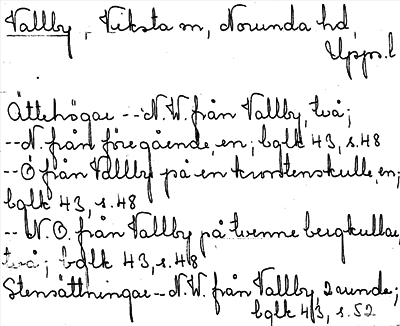 Vallby, Viksta sn, Norunda hd,
Upps. l
Ättehögar -- N.W. från Vallby, två;
-- N. från föregående, en; bglk 43, s. 48
-- Ö från Vallby på en krontenskulle, en;
bglk 43, s. 48
-- N.O. från Vallby på tvenne bergkullar,
två; bglk 43, s. 48
Stensättningar -- N.W. från Vallby, 2 runde;
bglk 43, s. 52